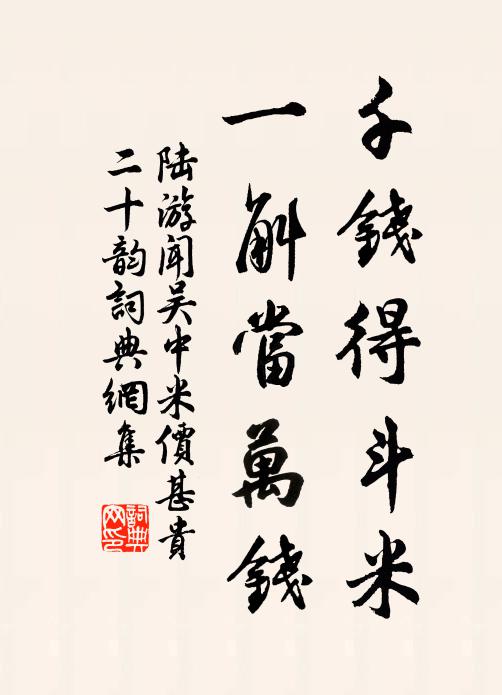 千錢得斗米
一斛當萬錢
陸游聞吴中米價甚貴
二十韵詞典網集
詞典
网印